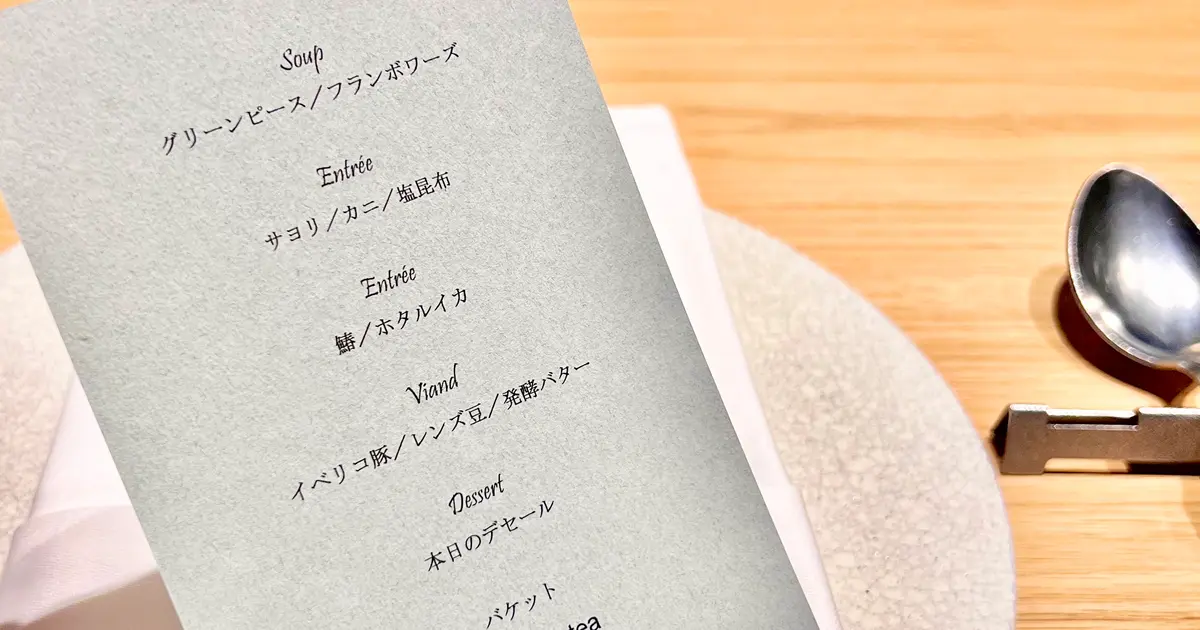 Soup
グリーンピース／フランボワーズ
Entrée
サヨリ／カニ／塩昆布
Entrée
鰆／ホタルイカ
Viand
イベリコ豚／レンズ豆／発酵バター
Dessert
本日のデセール
バケット
tea